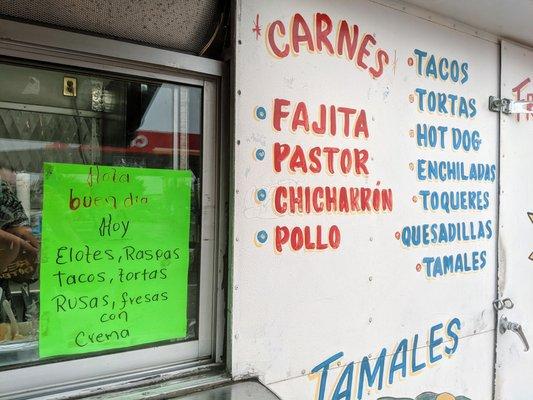 Hola
buen dia
Hoy
Elotes, Raspas
Tacos, tortas
Rusas, fresas
con
Crema
CARNES
FAJITA
PASTOR
CHICHARRÓN
POLLO
TACOS
TORTAS
HOT DOG
ENCHILADAS
TOQUERES
QUESADILLAS
TAMALES
TAMALES